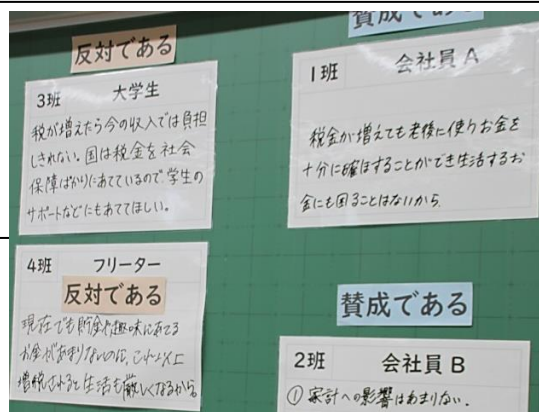 反対である
3班 大学生
税が増えたら今の収入では負担
しきれない。国は税金を社会
保障ばかりにあてているので、学生の
サポートなどにもあててほしい。
4班 フリーター
反対である
現在でも貯金や趣味にあてる
お金があまりないのに、これ以上
増税されると生活も厳しくなるから。
賛成である
1班 会社員A
税金が増えても老後に使うお金を
十分に確ほすることができ生活するお
金にも困ることはないから
賛成である
2班 会社員B
①家計への影響はあまりない。